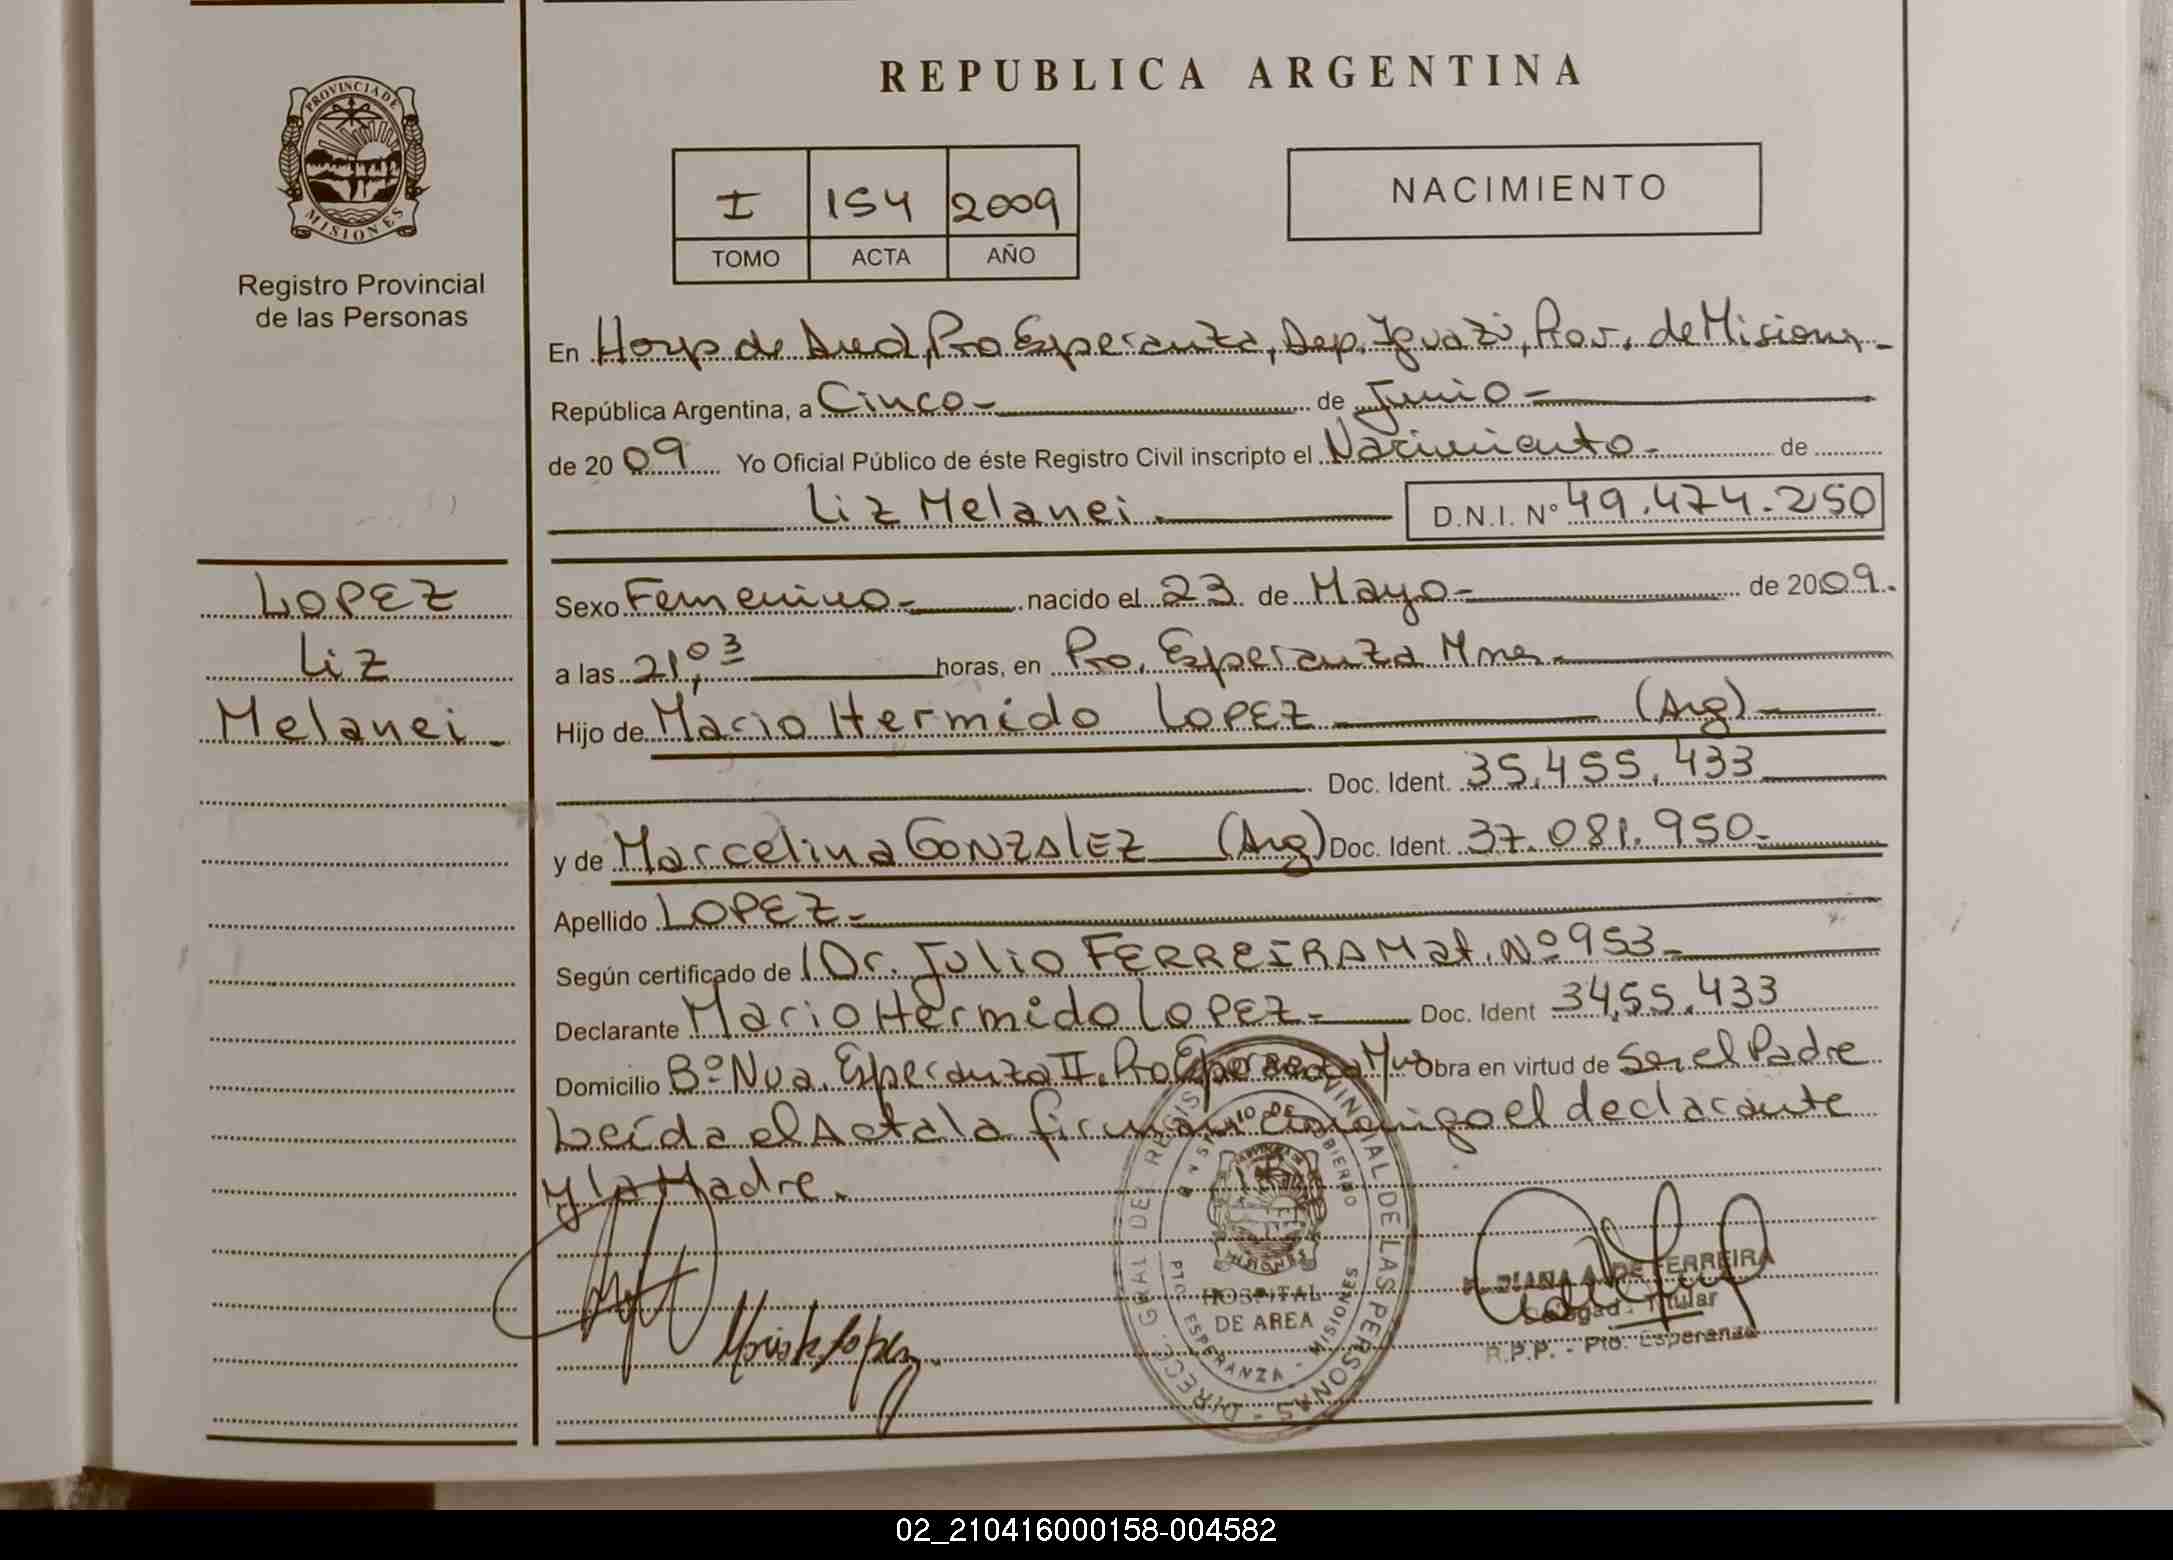 REPUBLICA ARGENTINA
PROVINCIA DE
MISIONES
Registro Provincial
de las Personas
I 154 2009
TOMO ACTA AÑO
NACIMIENTO
En Hosp de Area, Pto Esperanza, Dep. Iguazú, Prov. de Misiones -
República Argentina, a Cinco - de Junio -
de 20 09 Yo Oficial Público de éste Registro Civil inscripto el Nacimiento - de
Liz Melanei. D.N.I. Nº 49.474.250
LOPEZ
Liz
Melanei -
Sexo Femenino - nacido el 23 de Mayo - de 2009.
a las 21,03 horas, en Pto. Esperanza Mnes -
Hijo de Mario Hermido LOPEZ (Arg) -
Doc. Ident. 35.455.433
y de Marcelina GONZALEZ (Arg) Doc. Ident. 37.081.950 -
Apellido LOPEZ -
Según certificado de Dr. Julio FERREIRA Mat. Nº 953 -
Declarante Mario Hermido LOPEZ - Doc. Ident 34,55.433
Domicilio Bº Nva. Esperanza II, Pto Esperanza Obra en virtud de Ser el Padre
Leída el Acta la firman conmigo el declarante
y la Madre.
DIRECC. GRAL DE REGIS PROVINCIAL DE LAS PERSONAS
MINISTERIO DE GOBIERNO
HOSPITAL
DE AREA
PTO. ESPERANZA - MISIONES
DIANA A. DE FERREIRA
Delegad. Titular
R.P.P. - Pto. Esperanza
02_210416000158-004582